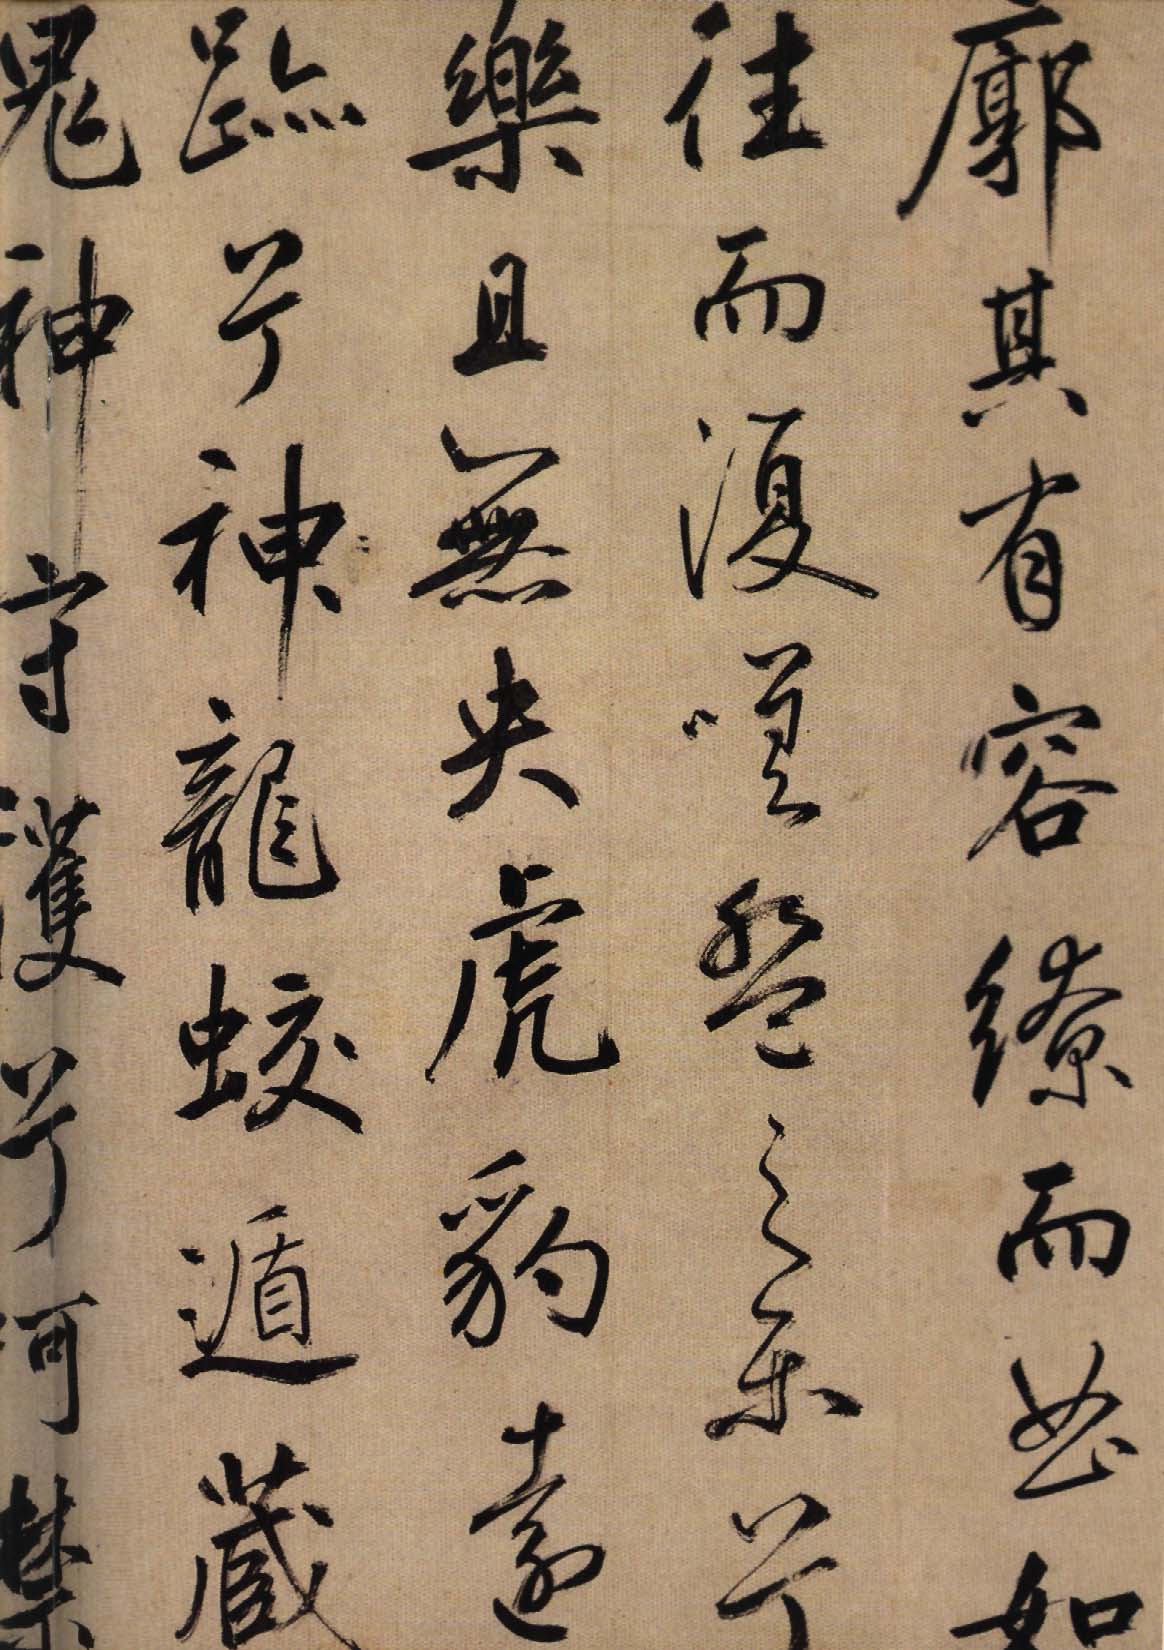 廓其有容繚而曲如
往而復嗟盤之樂兮
樂且無央虎豹遠
跡兮神龍蛟遁藏
鬼神守護兮呵禁